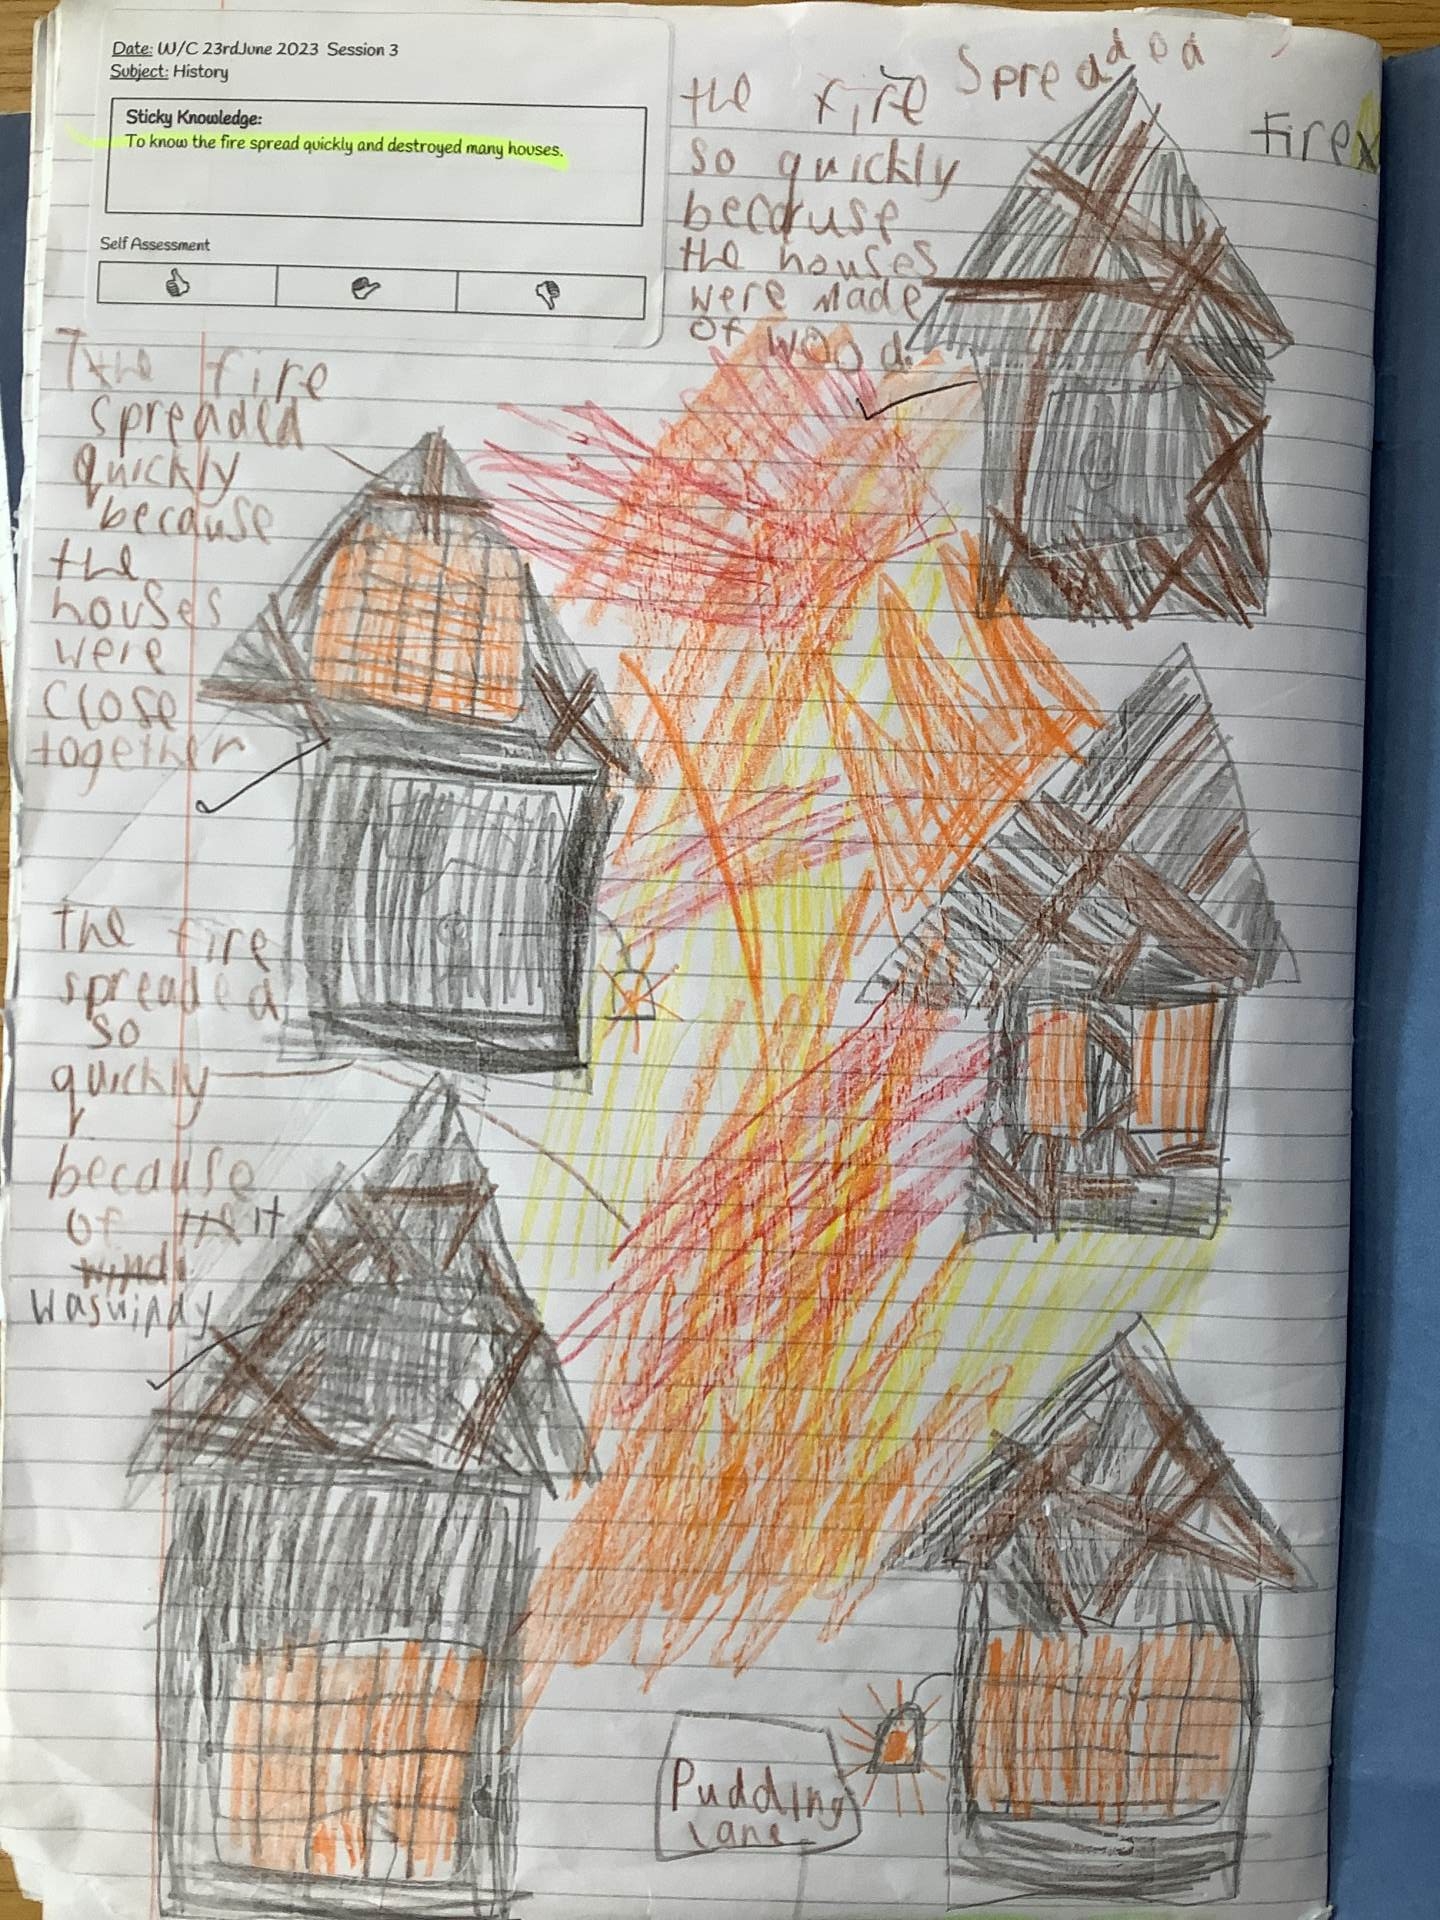 Date: W/C 23rdJune 2023 Session 3
Subject: History
Sticky Knowledge:
To know the fire spread quickly and destroyed many houses.
Self Assessment
the fire Spreaded
so quickly
because
the houses
were made
of wood.
fire
The fire
spreaded
quickly
because
the
houses
were
close
together
The fire
spreaded
so
quickly
because
of it
wind
was windy
Pudding
Lane